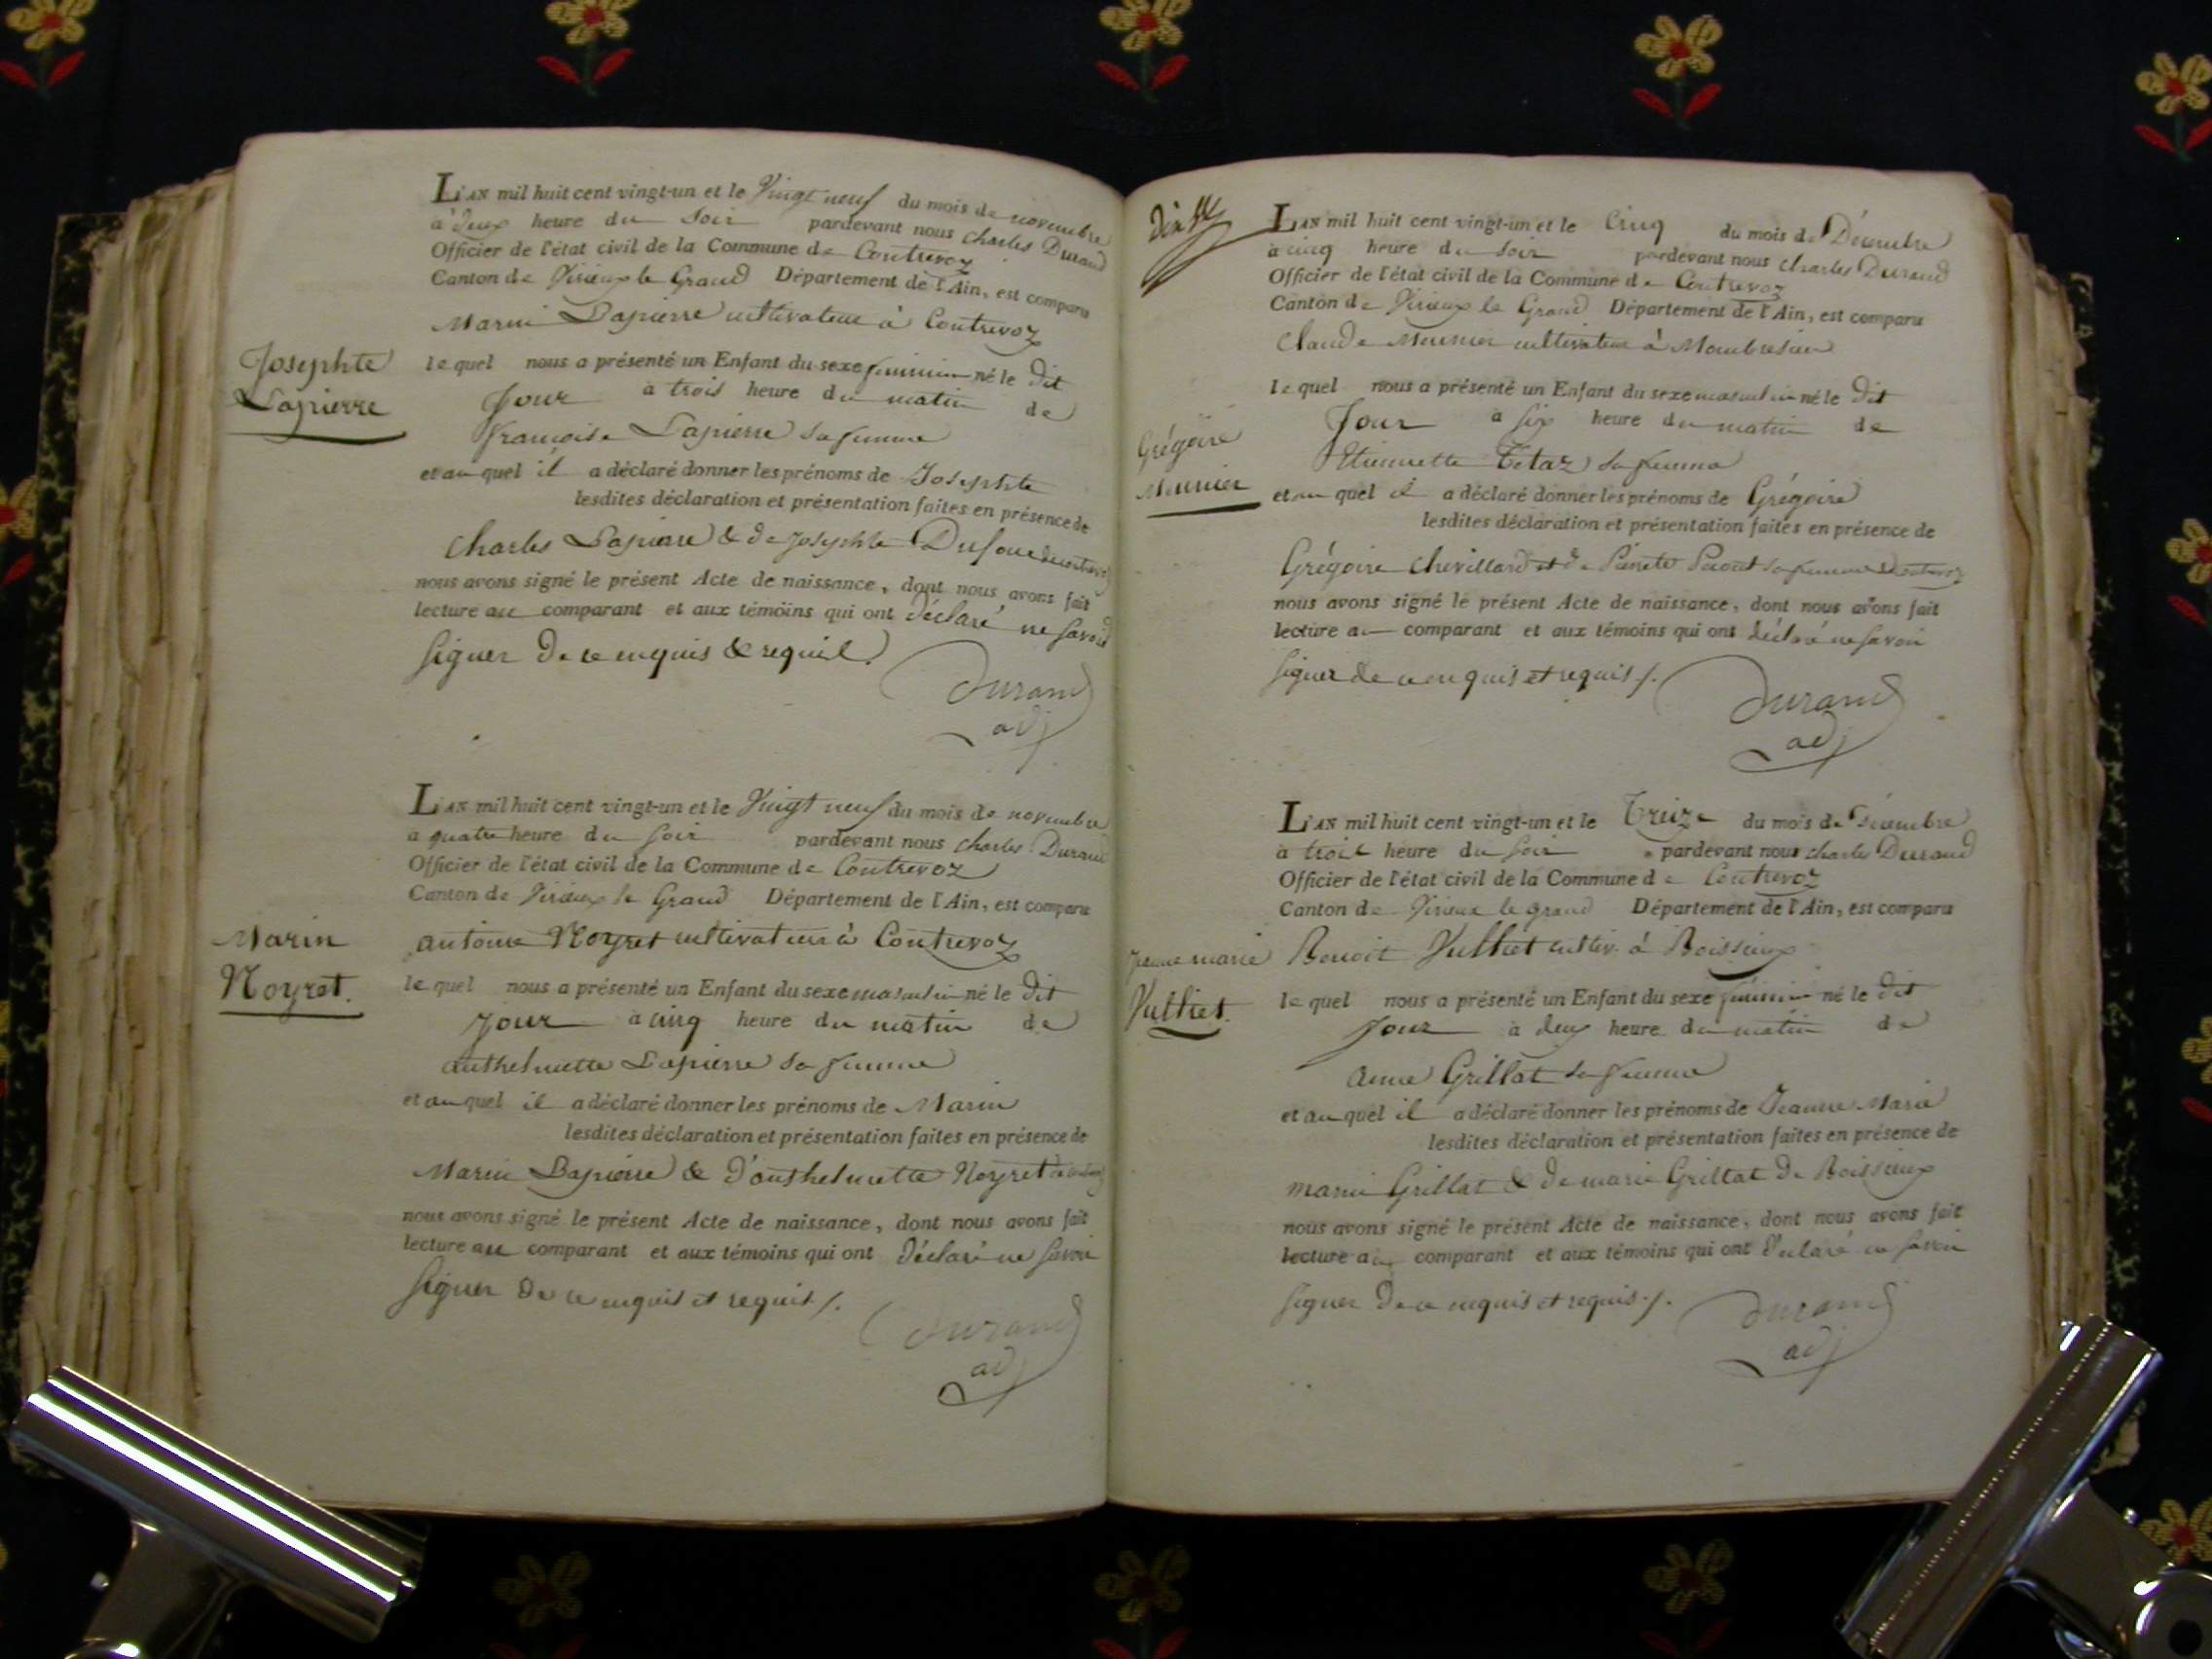 L'AN mil huit cent vingt-un et le Vingt neuf du mois de novembre
à deux heure du soir pardevant nous Charles Durand
Officier de l'état civil de la Commune de Contrevoz
Canton de Virieux le Grand Département de l'Ain, est comparu
Marin Lapierre cultivateur à Contrevoz
Josephte
Lapierre
le quel nous a présenté un Enfant du sexe feminin né le dit
Jour à trois heure du matin de
françoise Lapierre sa femme
et au quel il a déclaré donner les prénoms de Josephte
lesdites déclaration et présentation faites en présence de
Charles Lapierre & de Josephte Dufour de contrevoz
nous avons signé le présent Acte de naissance, dont nous avons fait
lecture au comparant et aux témoins qui ont déclaré ne savoir
signer de ce enquis & requis.
Durand
adj
L'AN mil huit cent vingt-un et le Vingt neuf du mois de novembre
à quatre heure du soir pardevant nous charles Durand
Officier de l'état civil de la Commune de Contrevoz
Canton de Virieux le Grand Département de l'Ain, est comparu
Marin
Noyret.
antoine Noyret cultivateur à Contrevoz
le quel nous a présenté un Enfant du sexe masculin né le dit
Jour à cinq heure du matin de
anthelmette Lapierre sa femme
et au quel il a déclaré donner les prénoms de Marin
lesdites déclaration et présentation faites en présence de
Marin Lapierre & d'anthelmette Noyret
nous avons signé le présent Acte de naissance, dont nous avons fait
lecture au comparant et aux témoins qui ont déclaré ne savoir
signer de ce enquis et requis /.
Durand
adj
L'AN mil huit cent vingt-un et le Cinq du mois de Décembre
à cinq heure du soir pardevant nous charles Durand
Officier de l'état civil de la Commune de Contrevoz
Canton de Virieux le Grand Département de l'Ain, est comparu
Claude Meunier cultivateur à Montbresieu
Grégoire
Meunier
le quel nous a présenté un Enfant du sexe masculin né le dit
Jour à six heure du matin de
Etiennette Tetaz sa femme
et au quel il a déclaré donner les prénoms de Grégoire
lesdites déclaration et présentation faites en présence de
Grégoire Chevillard et de sa femme de contrevoz
nous avons signé le présent Acte de naissance, dont nous avons fait
lecture au comparant et aux témoins qui ont déclaré ne savoir
signer de ce enquis et requis /.
Durand
adj
L'AN mil huit cent vingt-un et le Treize du mois de Décembre
à trois heure du soir pardevant nous charles Durand
Officier de l'état civil de la Commune de Contrevoz
Canton de Virieux le grand Département de l'Ain, est comparu
Jeanne marie
Vulliet.
Benoit Vulliet cultiv. à Boissieux
le quel nous a présenté un Enfant du sexe féminin né le dit
Jour à deux heure du matin de
anne Grillat sa femme
et au quel il a déclaré donner les prénoms de Jeanne Marie
lesdites déclaration et présentation faites en présence de
marin Grillat & de marie Grillat de Boissieux
nous avons signé le présent Acte de naissance, dont nous avons fait
lecture au comparant et aux témoins qui ont déclaré ne savoir
signer de ce enquis et requis /.
Durand
adj